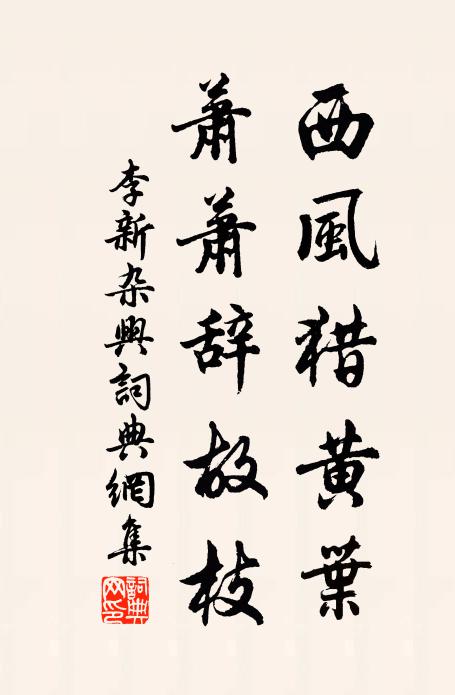 西風猎黄葉
蕭蕭辞故枝
李新杂興詞典網集
詞典网印